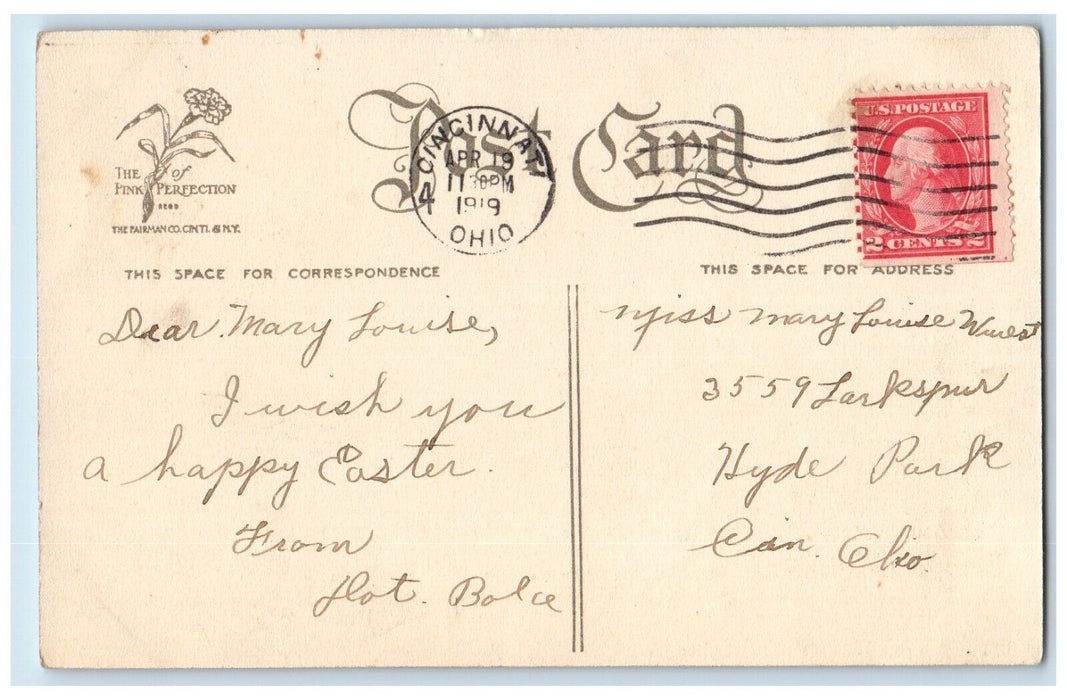 THE of
PINK PERFECTION
REGD
THE FAIRMAN CO. CINTI. & N.Y.
Post Card
CINCINNATI
APR 19
11 30PM
1919
OHIO
4
U.S. POSTAGE
2 CENTS 2
THIS SPACE FOR CORRESPONDENCE
THIS SPACE FOR ADDRESS
Dear Mary Louise,
I wish you
a happy Easter.
From
Dot. Bolce
Miss Mary Louise Wuest
3559 Larkspur
Hyde Park
Cin. Oho.